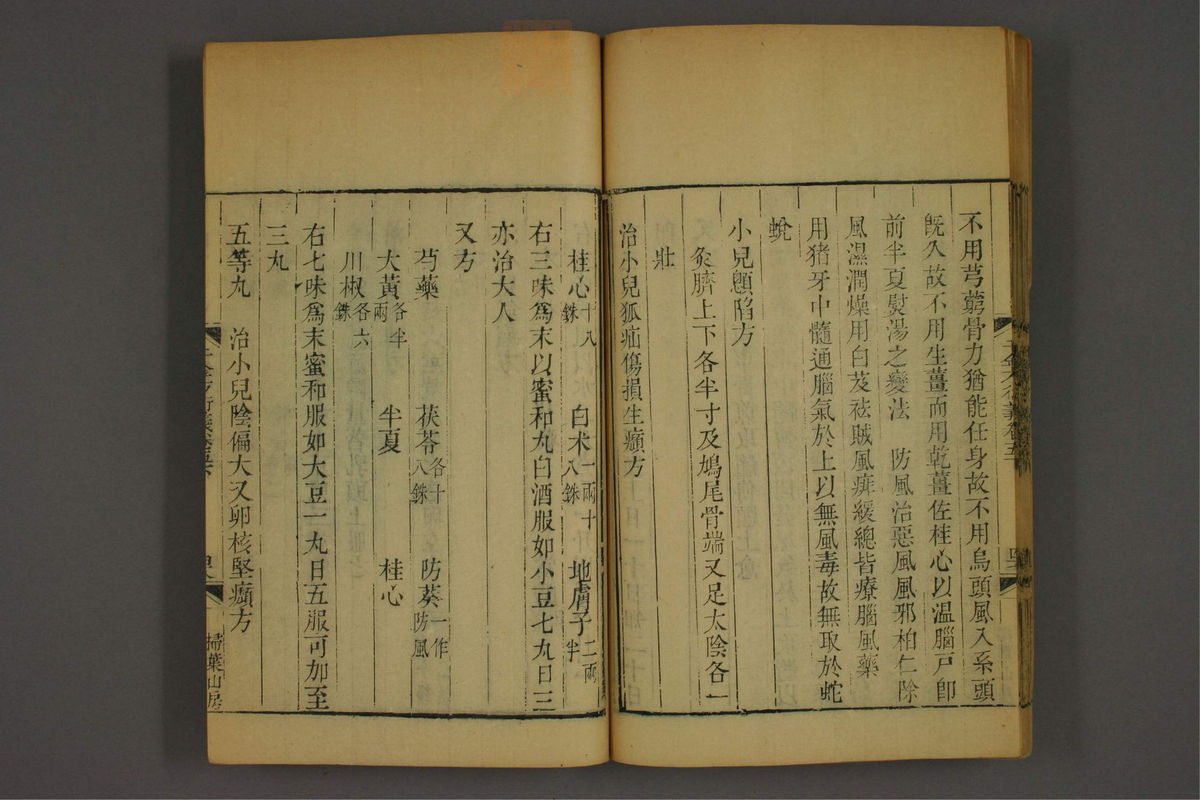 不用芎藭骨力猶能任身故不用烏頭風入系頭
旣久故不用生薑而用乾薑佐桂心以温腦戸卽
前半夏熨湯之變法　防風治惡風風邪柏仁除
風濕潤燥用白芨祛賊風痱緩總皆療腦風藥
用猪牙中髓通腦氣於上以無風毒故無取於蛇
蛻
小兒顖陷方
灸臍上下各半寸及鳩尾骨端又足太陰各一
壯
治小兒狐疝傷損生㿗方
桂心十八銖　白术一兩十八銖　地膚子二兩半
右三味爲末以蜜和丸白酒服如小豆七丸日三
亦治大人
又方
芍藥　茯苓各十八銖　防葵一作防風
大黃各半兩　半夏　桂心
川椒各六銖
右七味爲末蜜和服如大豆一丸日五服可加至
三丸
五等丸　治小兒陰偏大又卵核堅㿗方
掃葉山房